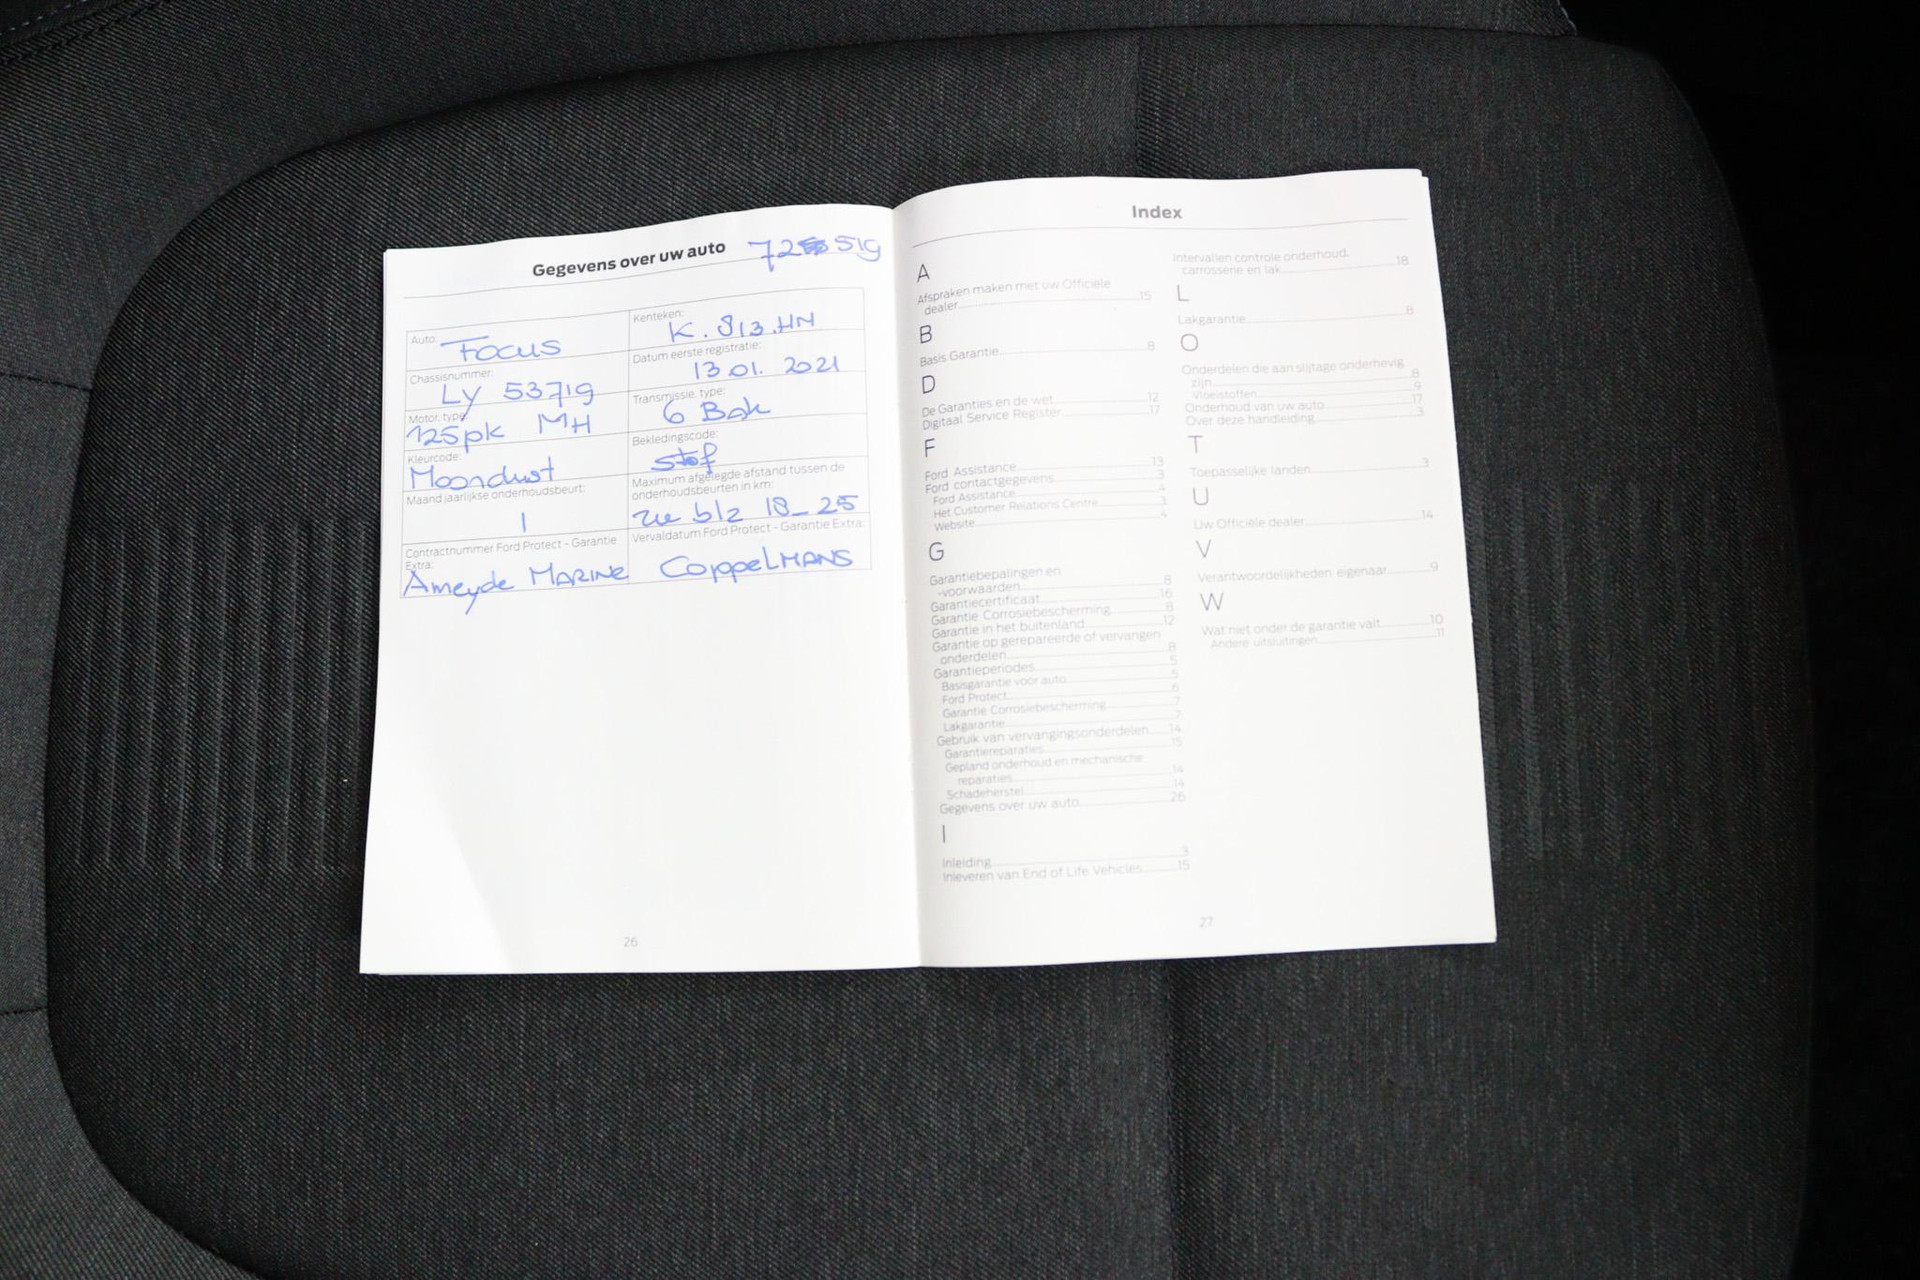 Gegevens over uw auto
Auto: Focus
Kenteken: K.813.HN
Chassisnummer: LY 53719
Datum eerste registratie: 13 01. 2021
Motor, type: 125pk MH
Transmissie, type: 6 Bak
Kleurcode: Moondust
Bekledingscode: stof
Maand jaarlijkse onderhoudsbeurt: 1
Maximum afgelegde afstand tussen de
onderhoudsbeurten in km:
zie blz 18_25
Contractnummer Ford Protect - Garantie
Extra:
Ameyde MARINE
Vervaldatum Ford Protect - Garantie Extra:
CoppelMANS
26
Index
A
Afspraken maken met uw Officiële
dealer 15
B
Basis Garantie 8
D
De Garanties en de wet 12
Digitaal Service Register 17
F
Ford Assistance 13
Ford contactgegevens 3
Ford Assistance 4
Het Customer Relations Centre 3
Website 4
G
Garantiebepalingen en
-voorwaarden 8
Garantiecertificaat 16
Garantie Corrosiebescherming 8
Garantie in het buitenland 12
Garantie op gerepareerde of vervangen
onderdelen 8
Garantieperiodes 5
Basisgarantie voor auto 5
Ford Protect 6
Garantie Corrosiebescherming 7
Lakgarantie 7
Gebruik van vervangingsonderdelen 14
Garantiereparaties 15
Gepland onderhoud en mechanische
reparaties 14
Schadeherstel 14
Gegevens over uw auto 26
I
Inleiding 3
Inleveren van End of Life Vehicles 15
Intervallen controle onderhoud,
carrosserie en lak 18
L
Lakgarantie 8
O
Onderdelen die aan slijtage onderhevig
zijn 8
Vloeistoffen 9
Onderhoud van uw auto 17
Over deze handleiding 3
T
Toepasselijke landen 3
U
Uw Officiële dealer 14
V
Verantwoordelijkheden eigenaar 9
W
Wat niet onder de garantie valt 10
Andere uitsluitingen 11
27